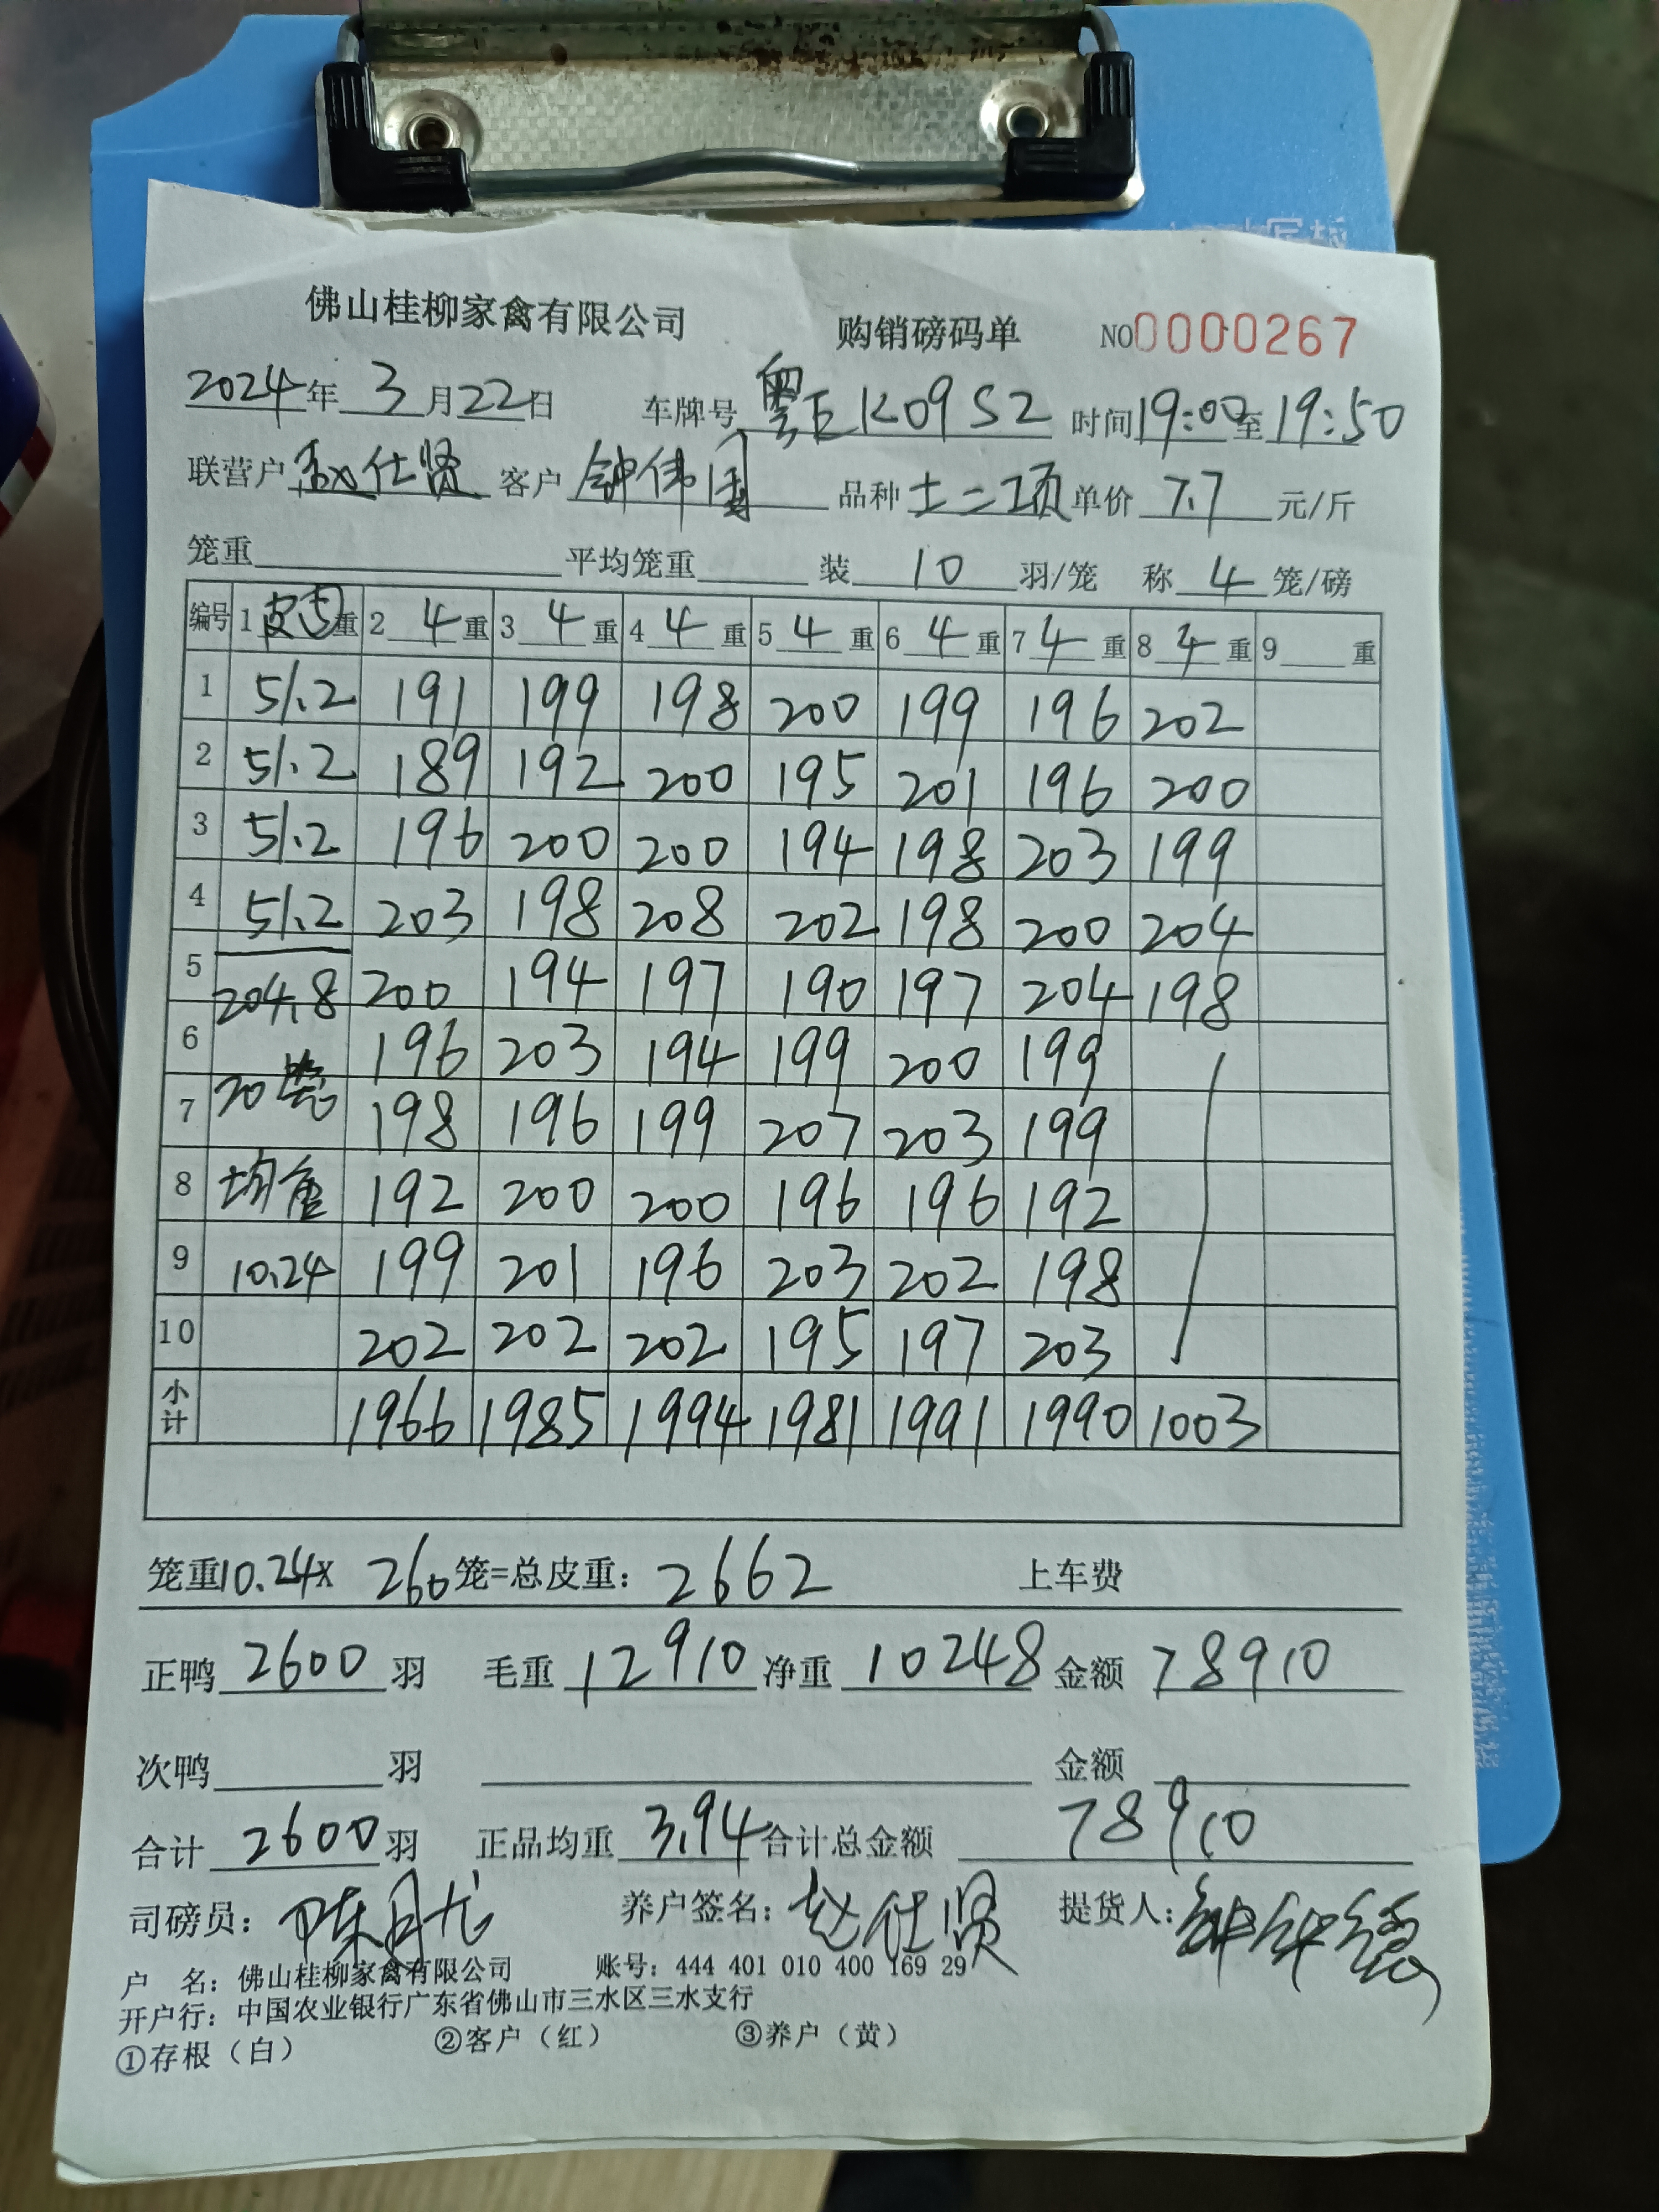 佛山桂柳家禽有限公司 购销磅码单 NO0000267
2024年3月22日 车牌号 粤E K09S2 时间19:00至19:50
联营户 赵仕贤 客户 钟伟 品种 土二项 单价 7.7 元/斤
笼重 平均笼重 装 10 羽/笼 称 4 笼/磅
编号 1 皮 重 2 4 重 3 4 重 4 4 重 5 4 重 6 4 重 7 4 重 8 4 重 9 重
1 51.2 191 199 198 200 199 196 202
2 51.2 189 192 200 195 201 196 200
3 51.2 196 200 200 194 198 203 199
4 51.2 203 198 208 202 198 200 204
5 204.8 200 194 197 190 197 204 198
6 196 203 194 199 200 199
7 20笼 198 196 199 207 203 199
8 均重 192 200 200 196 196 192
9 10.24 199 201 196 203 202 198
10 202 202 202 195 197 203
小计 1966 1985 1994 1981 1991 1990 1003
笼重10.24× 260笼=总皮重: 2662 上车费
正鸭 2600 羽 毛重 12910 净重 10248 金额 78910
次鸭 羽 金额
合计 2600羽 正品均重 3.94 合计总金额 78910
司磅员: 陈月 养户签名: 赵仕贤 提货人:
户 名: 佛山桂柳家禽有限公司 账号: 444 401 010 400 169 29
开户行: 中国农业银行广东省佛山市三水区三水支行
①存根(白) ②客户(红) ③养户(黄)